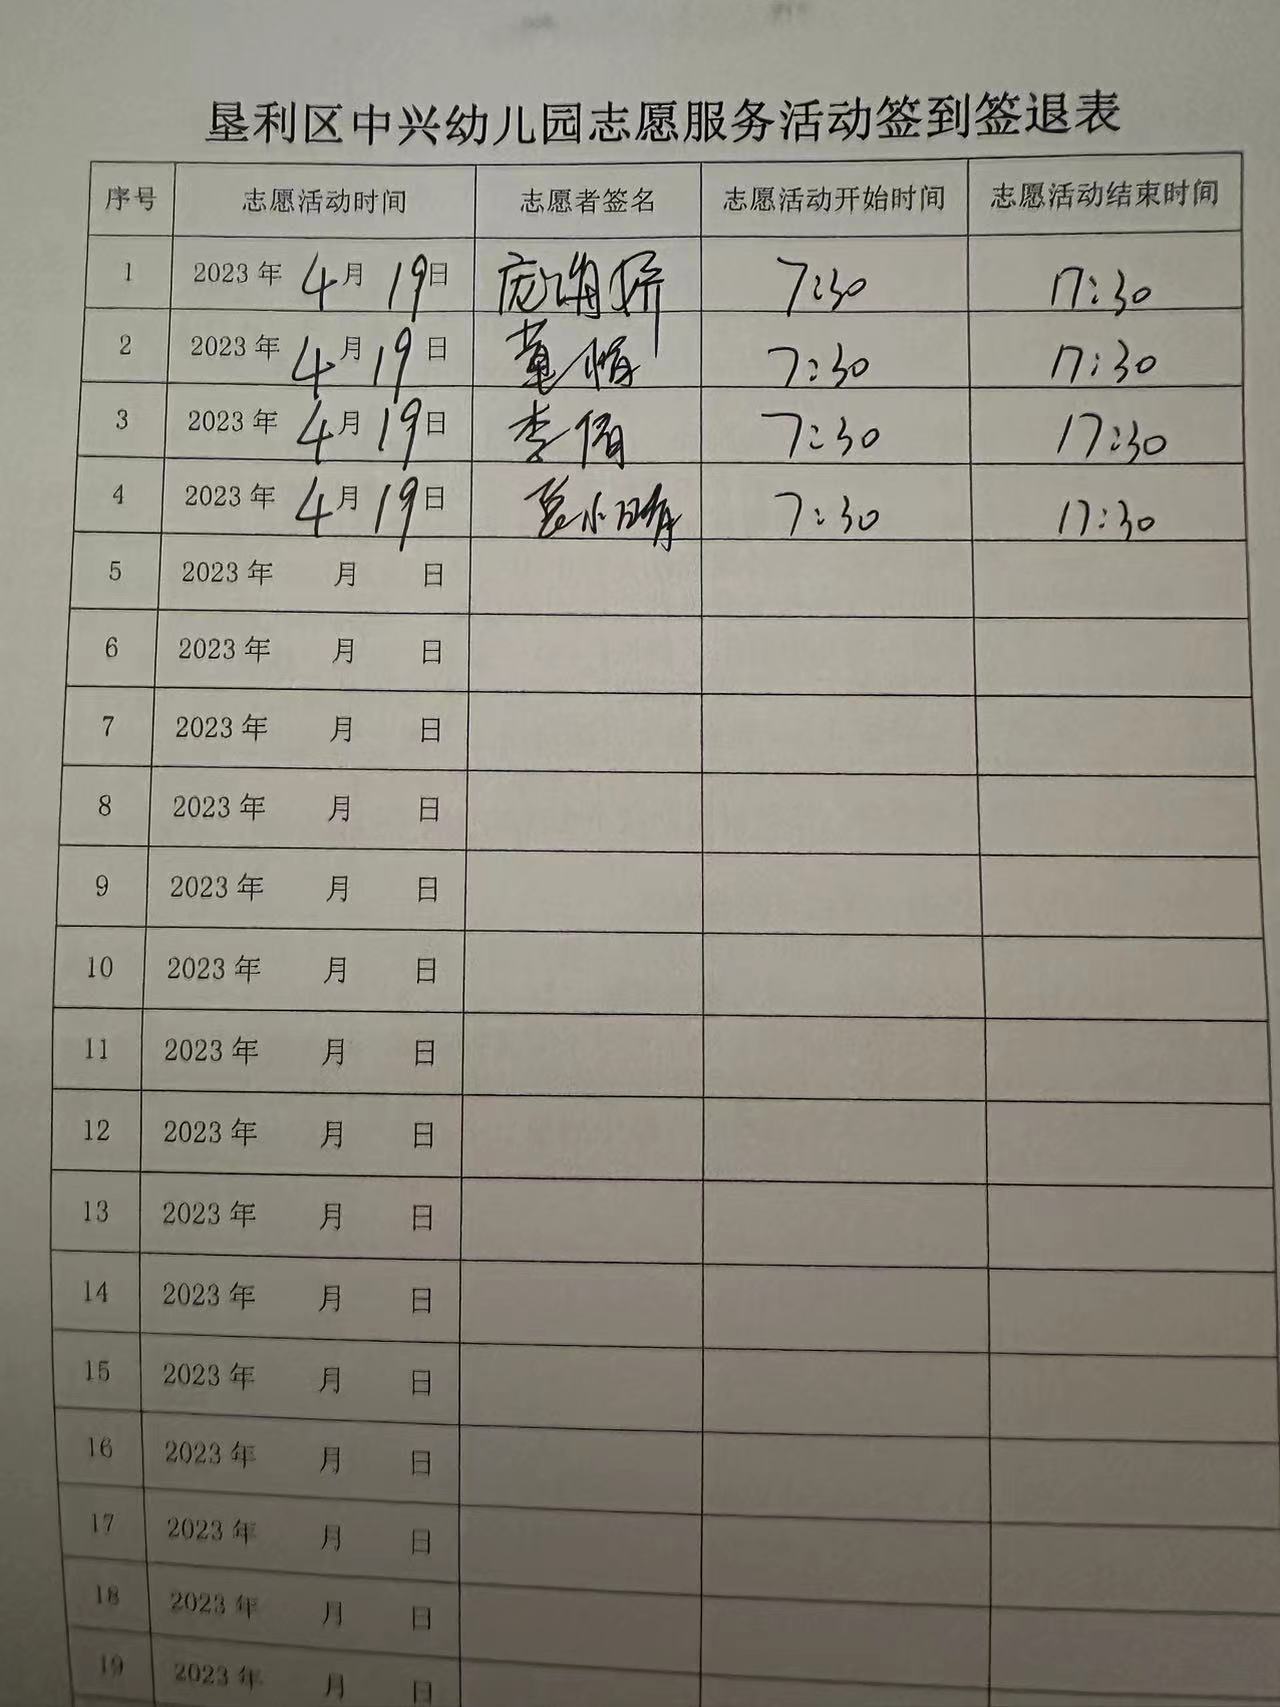 垦利区中兴幼儿园志愿服务活动签到签退表
序号 志愿活动时间 志愿者签名 志愿活动开始时间 志愿活动结束时间
1 2023年 4月 19日 庞海娇 7:30 17:30
2 2023年 4月 19日 董娟 7:30 17:30
3 2023年 4月 19日 李倩 7:30 17:30
4 2023年 4月 19日 小晴 7:30 17:30
5 2023年 月 日
6 2023年 月 日
7 2023年 月 日
8 2023年 月 日
9 2023年 月 日
10 2023年 月 日
11 2023年 月 日
12 2023年 月 日
13 2023年 月 日
14 2023年 月 日
15 2023年 月 日
16 2023年 月 日
17 2023年 月 日
18 2023年 月 日
19 2023年 月 日